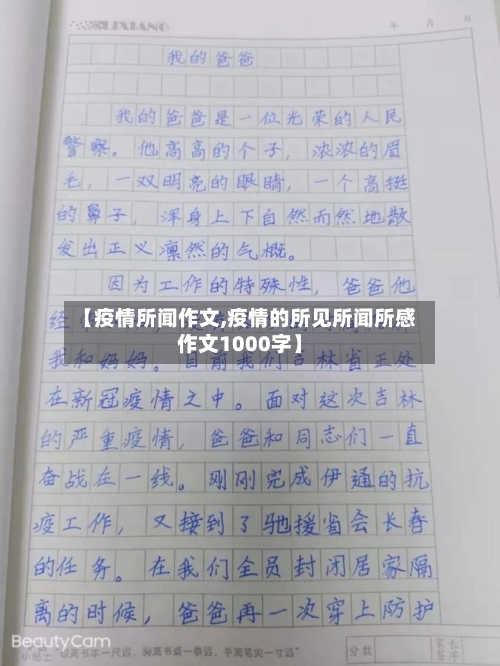 LIXIANG
年 月 日
我的爸爸
我的爸爸是一位光荣的人民
警察。他高高的个子，浓浓的眉
毛，一双明亮的眼睛，一个高挺
的鼻子，浑身上下自然而然地散
发出正义凛然的气概。
因为工作的特殊性，爸爸他
经
【疫情所闻作文,疫情的所见所闻所感
作文1000字】
我和妈妈。目前我们吉林省正处
在新冠疫情之中。面对这次吉林
的严重疫情，爸爸和同志们一直
奋战在一线。刚刚完成伊通的抗
疫工作，又接到了驰援省会长春
的任务。在我们全员封闭居家隔
离的时候，爸爸再一次穿上防护
BeautyCam
小贴士 眼离书本一尺远，胸离书桌一拳远，手离笔尖一寸远
分数
家长
签字